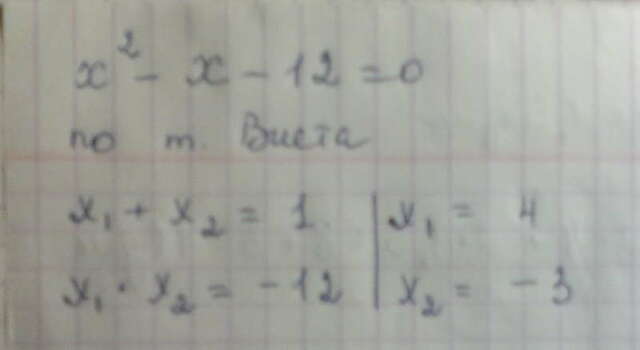 x² - x - 12 = 0
по т. Виета
x₁ + x₂ = 1. | x₁ = 4
x₁ · x₂ = -12 | x₂ = -3